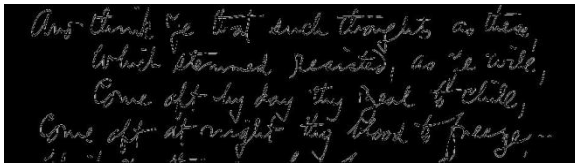 And think ye that such thoughts as these,
Which stemmed resisted, as ye will,
Come oft by day thy zeal to chill,
Come oft at night thy blood to freeze --